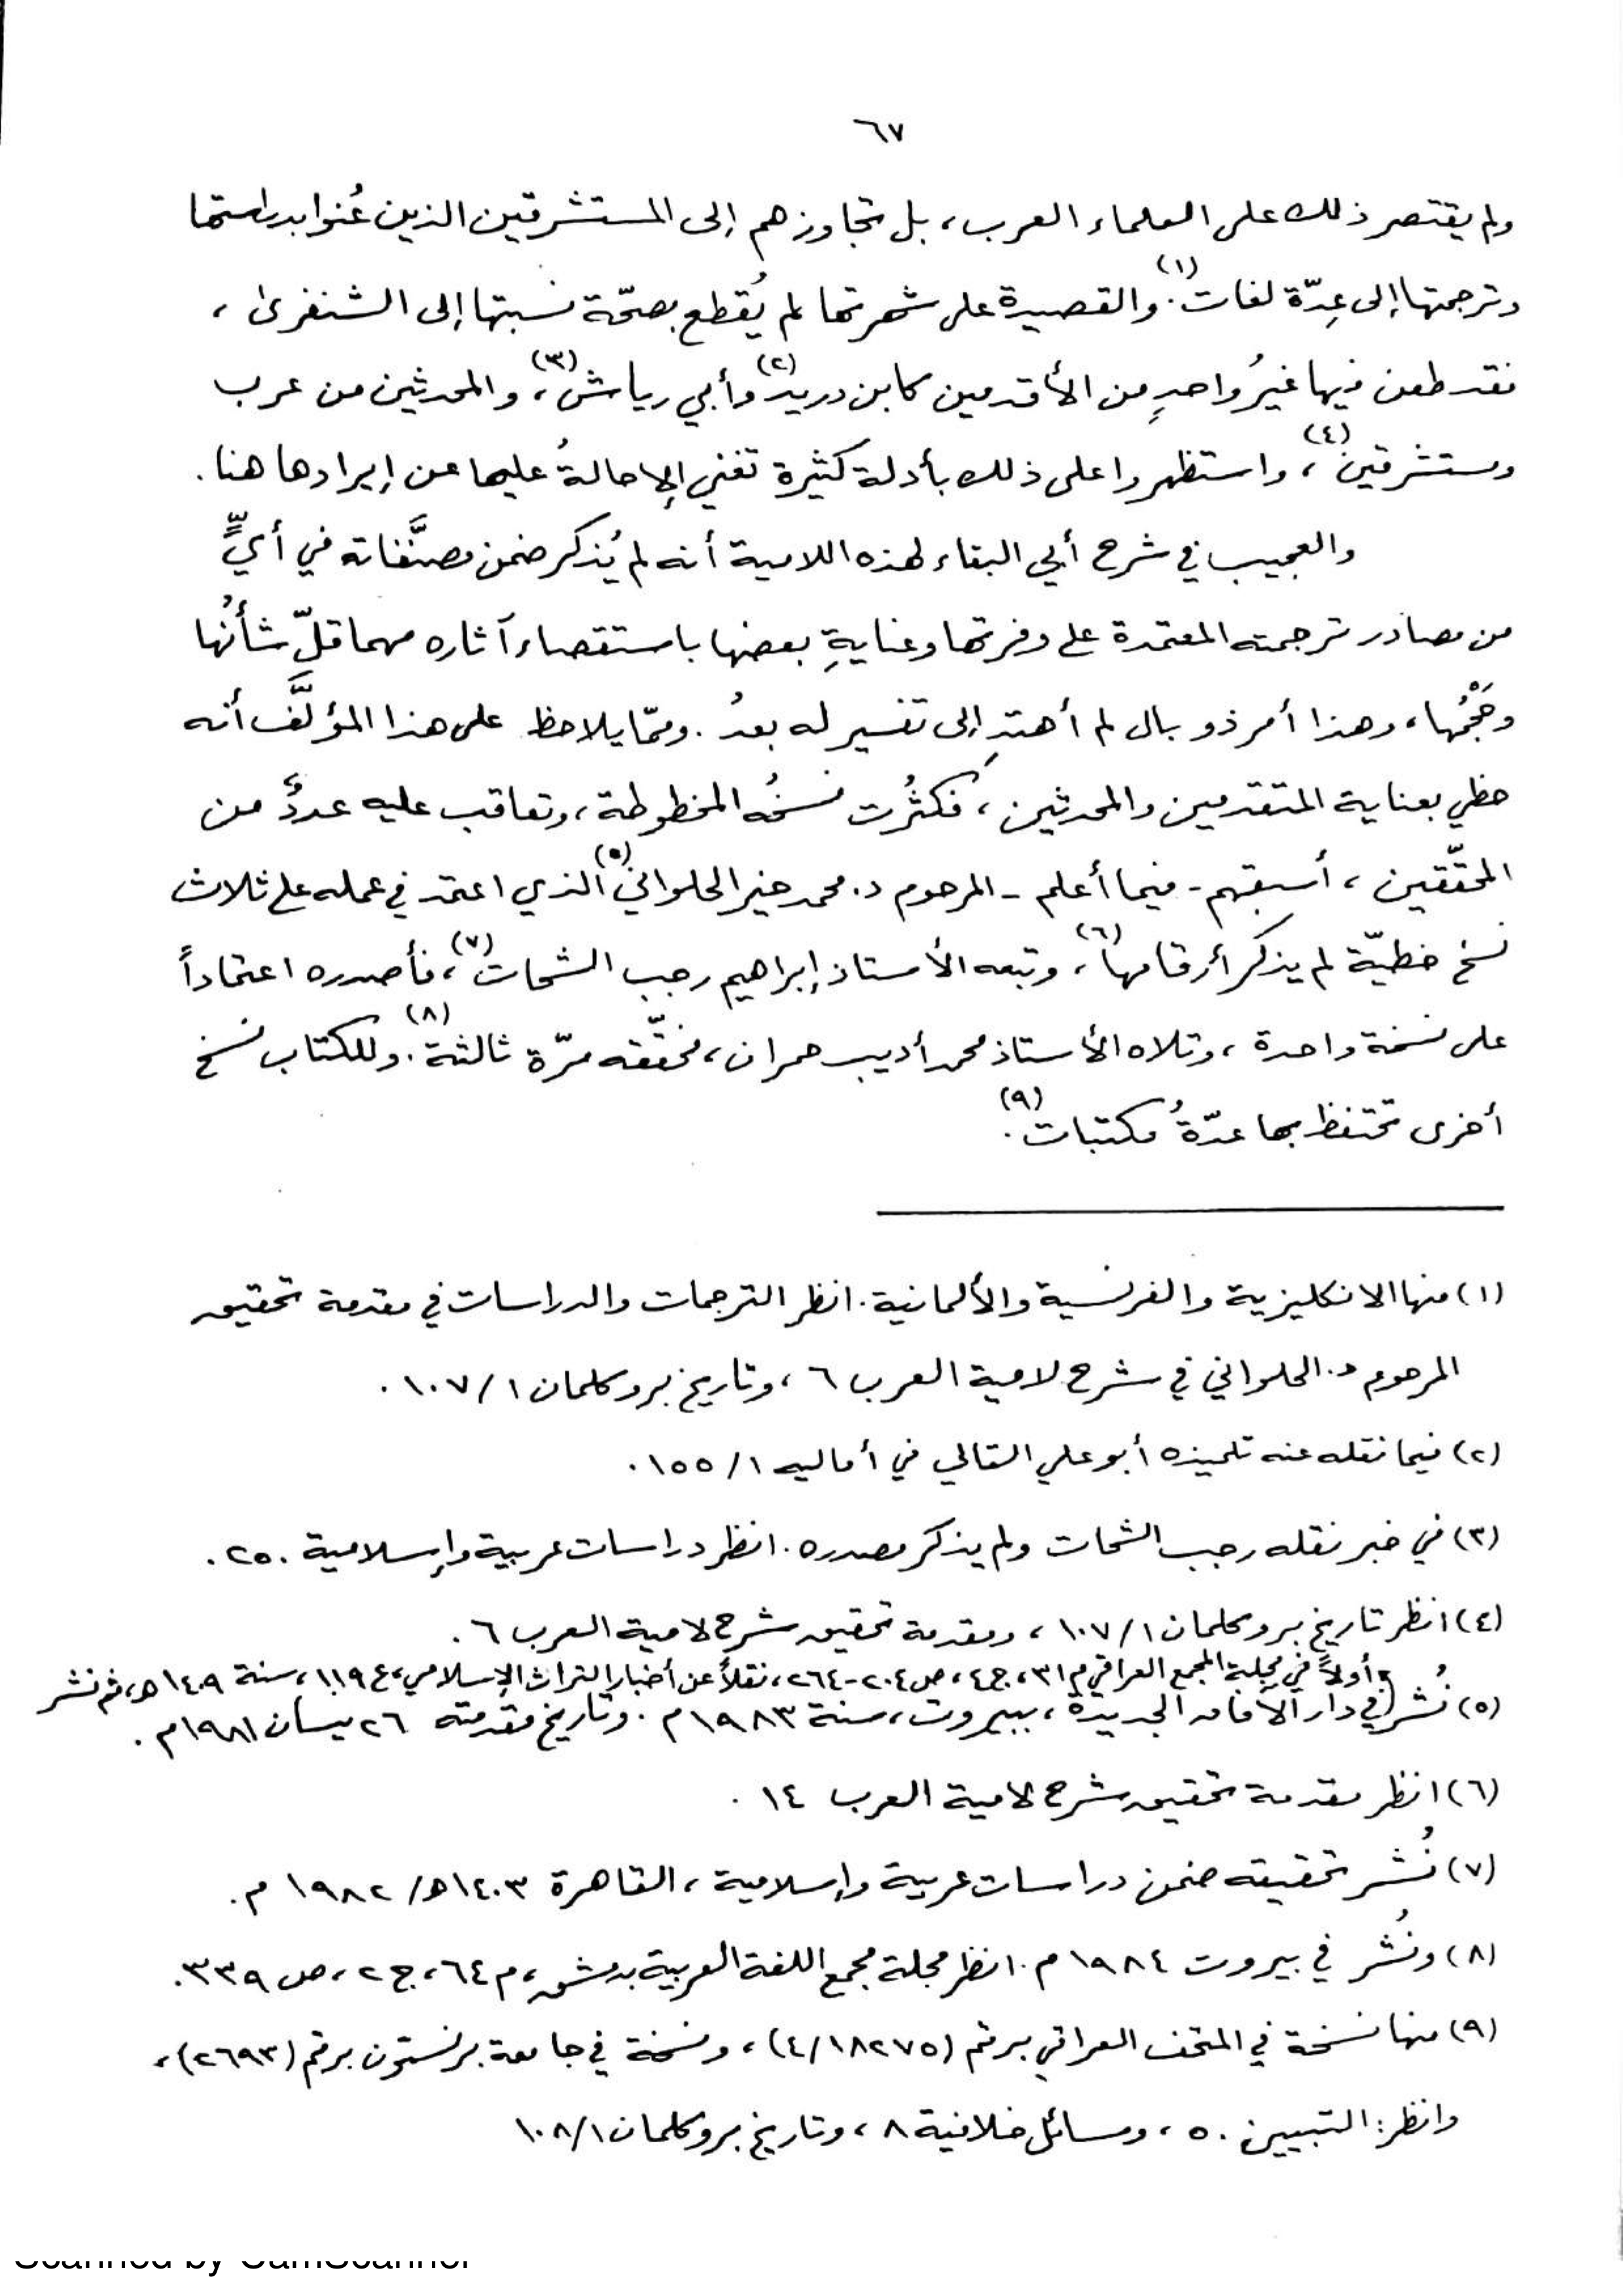 ٦٧
ولم يقتصر ذلك على العلماء العرب، بل تجاوزهم إلى المستشرقين الذين عُنوا بدراستها
وترجمتها إلى عِدّة لغات(١). والقصيدة على شهرتها لم يُقطع بصحّة نسبتها إلى الشنفرى،
فقد طعن فيها غيرُ واحدٍ من الأقدمين كابن دريد(٢) وأبي رياش(٣)، والمحدثين من عرب
ومستشرقين(٤)، واستظهروا على ذلك بأدلة كثيرة تغني الإحالةُ عليها عن إيرادها هنا.
والعجيب في شرح أبي البقاء لهذه اللامية أنه لم يُذكر ضمن مصنَّفاته في أيٍّ
من مصادر ترجمته المعتمدة على وفرتها وعنايةِ بعضها باستقصاء آثاره مهما قلّ شأنُها
وحَجْمُها، وهذا أمر ذو بال لم أهتدِ إلى تفسير له بعدُ. وممّا يلاحظ على هذا المؤلَّف أنه
حظي بعناية المتقدمين والمحدثين، فكثُرت نسخُه المخطوطة، وتعاقب عليه عددٌ من
المحقّقين، أسبقهم - فيما أعلم - المرحوم د. محمد خير الحلواني(٥) الذي اعتمد في عمله على ثلاث
نسخ خطيّة لم يذكر أرقامها(٦)، وتبعه الأستاذ إبراهيم رجب الشحات(٧)، فأصدره اعتماداً
على نسخة واحدة، وتلاه الأستاذ محمد أديب حمران، فحقّقه مرّة ثالثة(٨). وللكتاب نسخ
أخرى تحتفظ بها عدّةُ مكتبات(٩).
(١) منها الانكليزية والفرنسية والألمانية. انظر الترجمات والدراسات في مقدمة تحقيق
المرحوم د. الحلواني في شرح لامية العرب ٦، وتاريخ بروكلمان ١/ ١٠٧.
(٢) فيما نقله عنه تلميذه أبو علي القالي في أماليه ١/ ١٥٥.
(٣) في خبر نقله رجب الشحات ولم يذكر مصدره. انظر دراسات عربية وإسلامية ٢٥٠.
(٤) انظر تاريخ بروكلمان ١/ ١٠٧، ومقدمة تحقيق شرح لامية العرب ٦.
(٥) نُشر أولاً في مجلة المجمع العراقي م ٣١، ج ٤، ص ٢٠٤-٢٦٤، نقلاً عن أخبار التراث الإسلامي، ع ١١٩، سنة ١٤٠٩ هـ، ثم نشر
في دار الآفاق الجديدة، بيروت، سنة ١٩٨٣ م. وتاريخ مقدمته ٢٦ نيسان ١٩٨١ م.
(٦) انظر مقدمة تحقيق شرح لامية العرب ١٤.
(٧) نُشر تحقيقه ضمن دراسات عربية وإسلامية، القاهرة ١٤٠٣ هـ/ ١٩٨٢ م.
(٨) ونُشر في بيروت ١٩٨٤ م. انظر مجلة مجمع اللغة العربية بدمشق، م ٦٤، ج ٢، ص ٣٣٩.
(٩) منها نسخة في المتحف العراقي برقم (١٨٢٧٥/ ٤)، ونسخة في جامعة برنستون برقم (٢٦٩٣)،
وانظر: التبيين ٥٠، ومسائل خلافية ٨، وتاريخ بروكلمان ١/ ١٠٨
Scanned by CamScanner